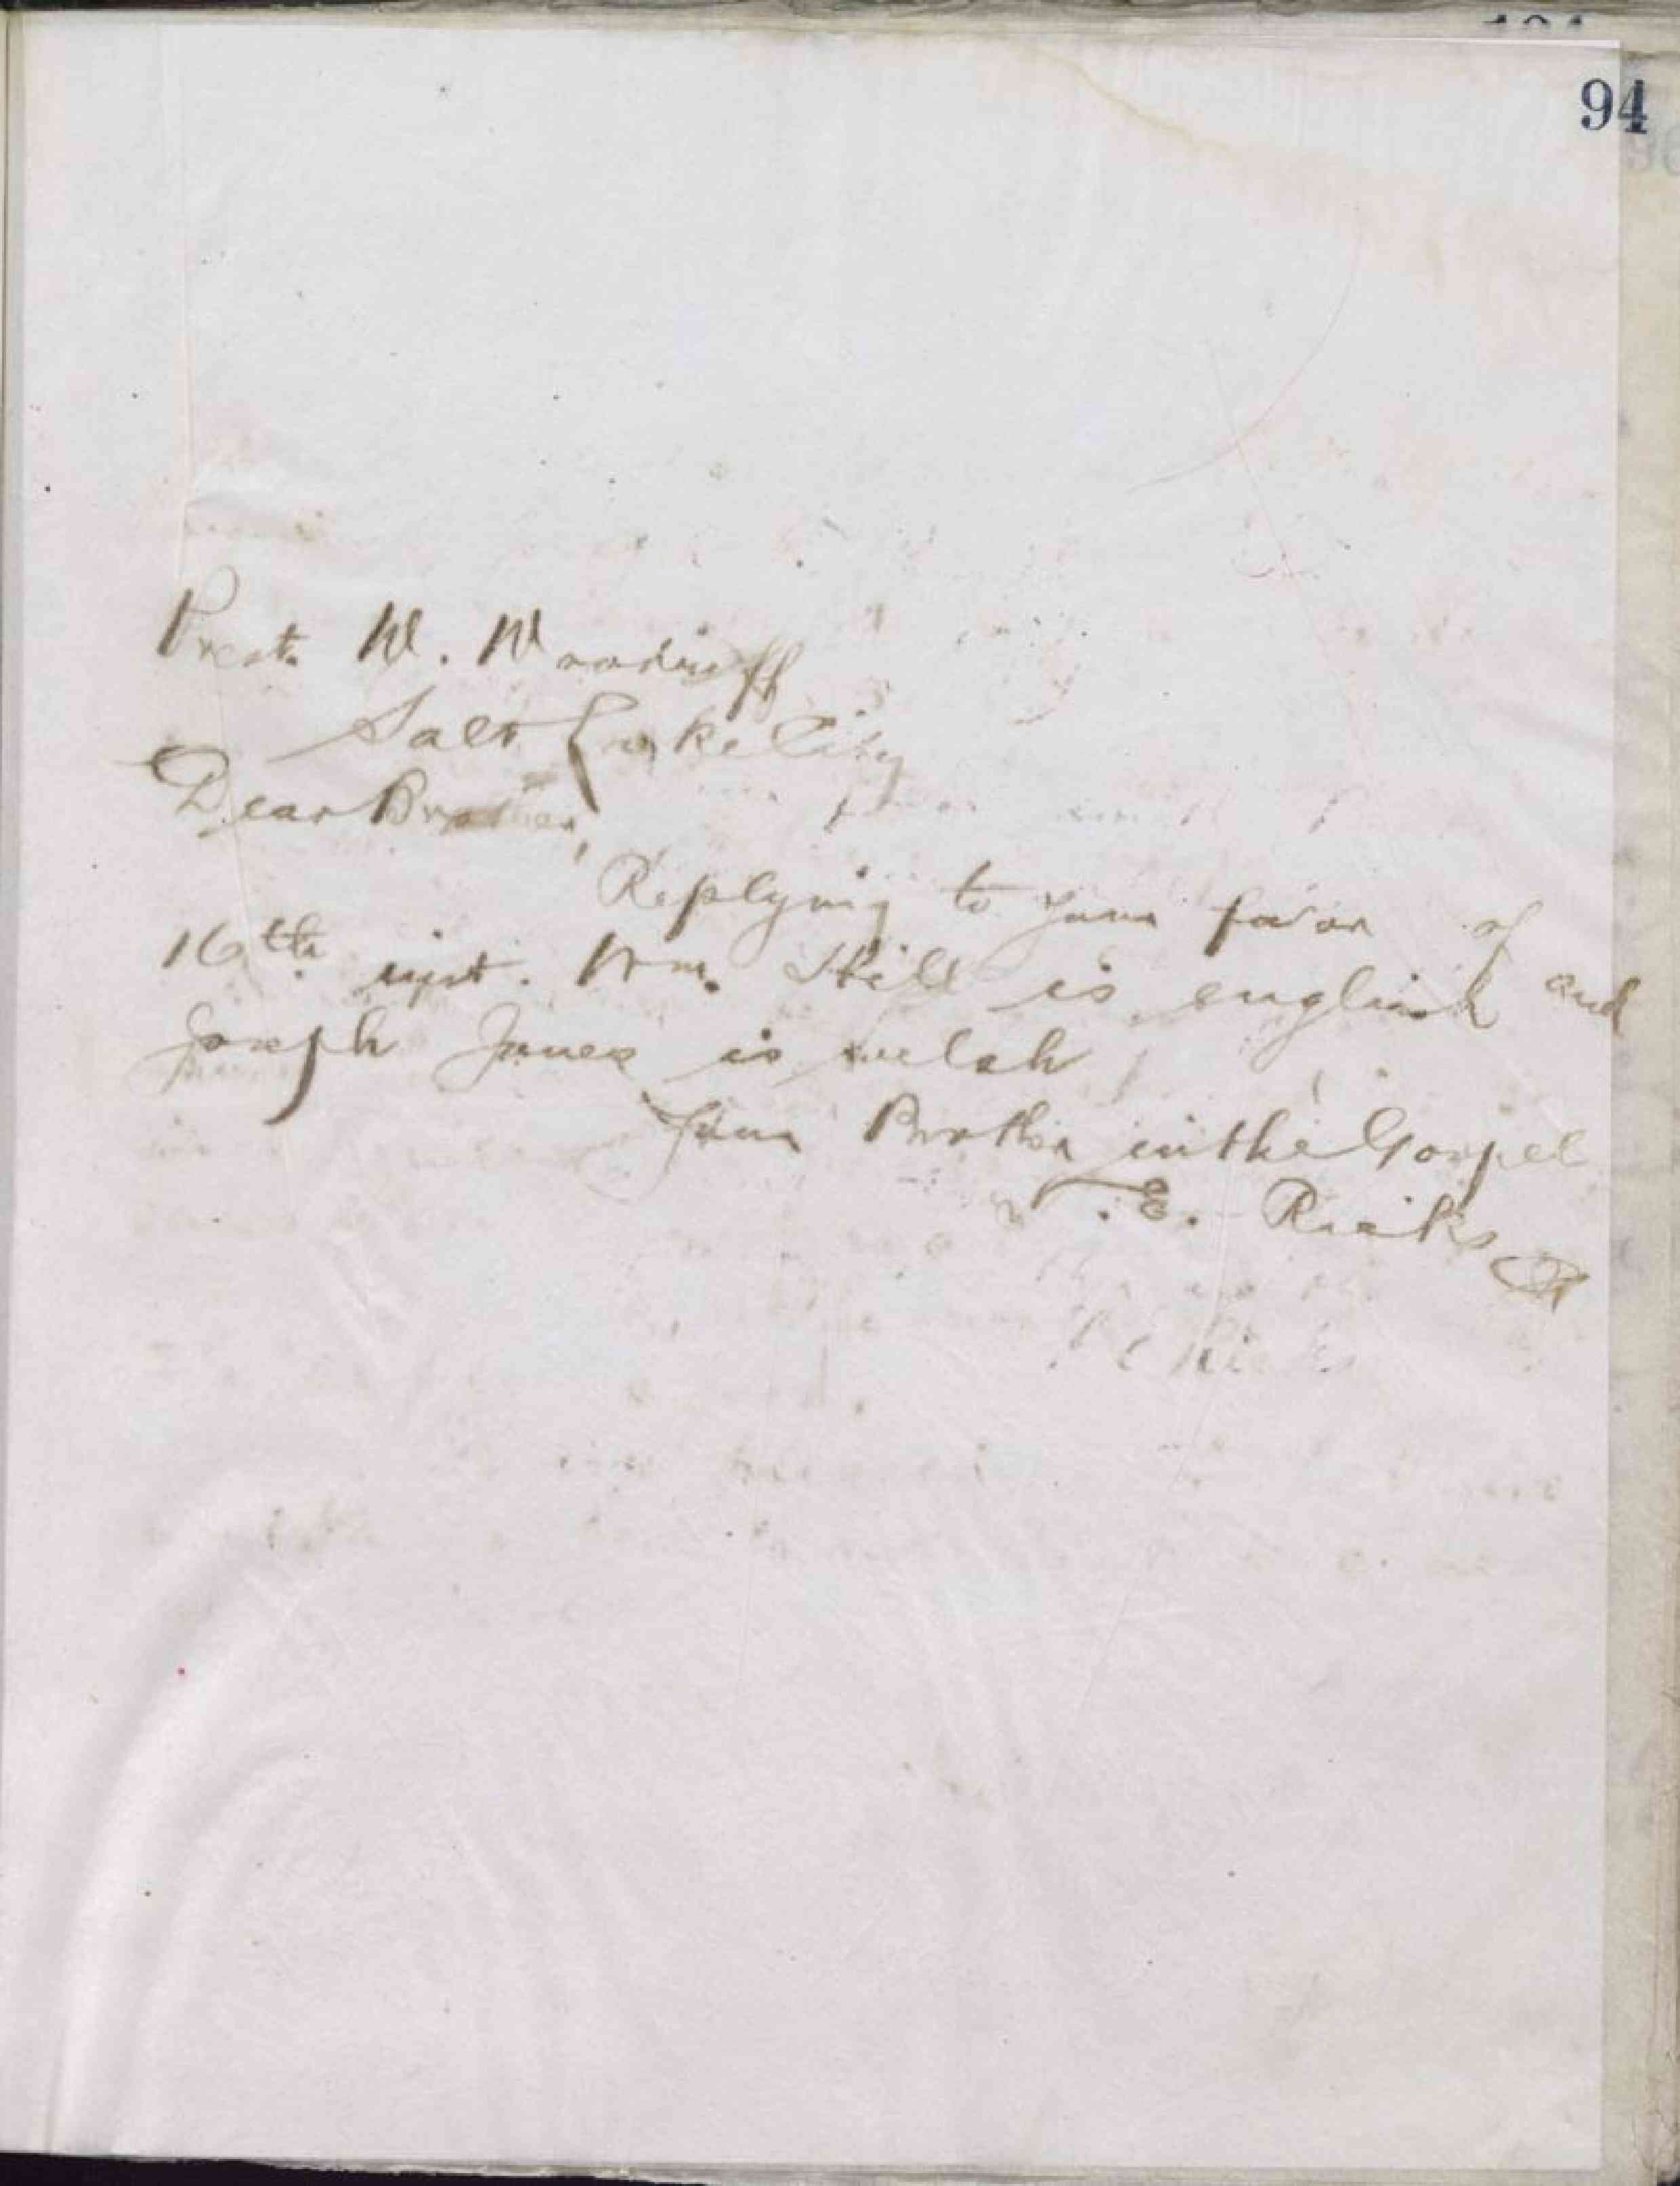 94
Prest. W. Woodruff
Salt Lake City
Dear Brother,
Replying to your favor of
16th inst. Wm. Hill is english and
Joseph Jones is welsh
Your Brother in the Gospel
T. E. Ricks